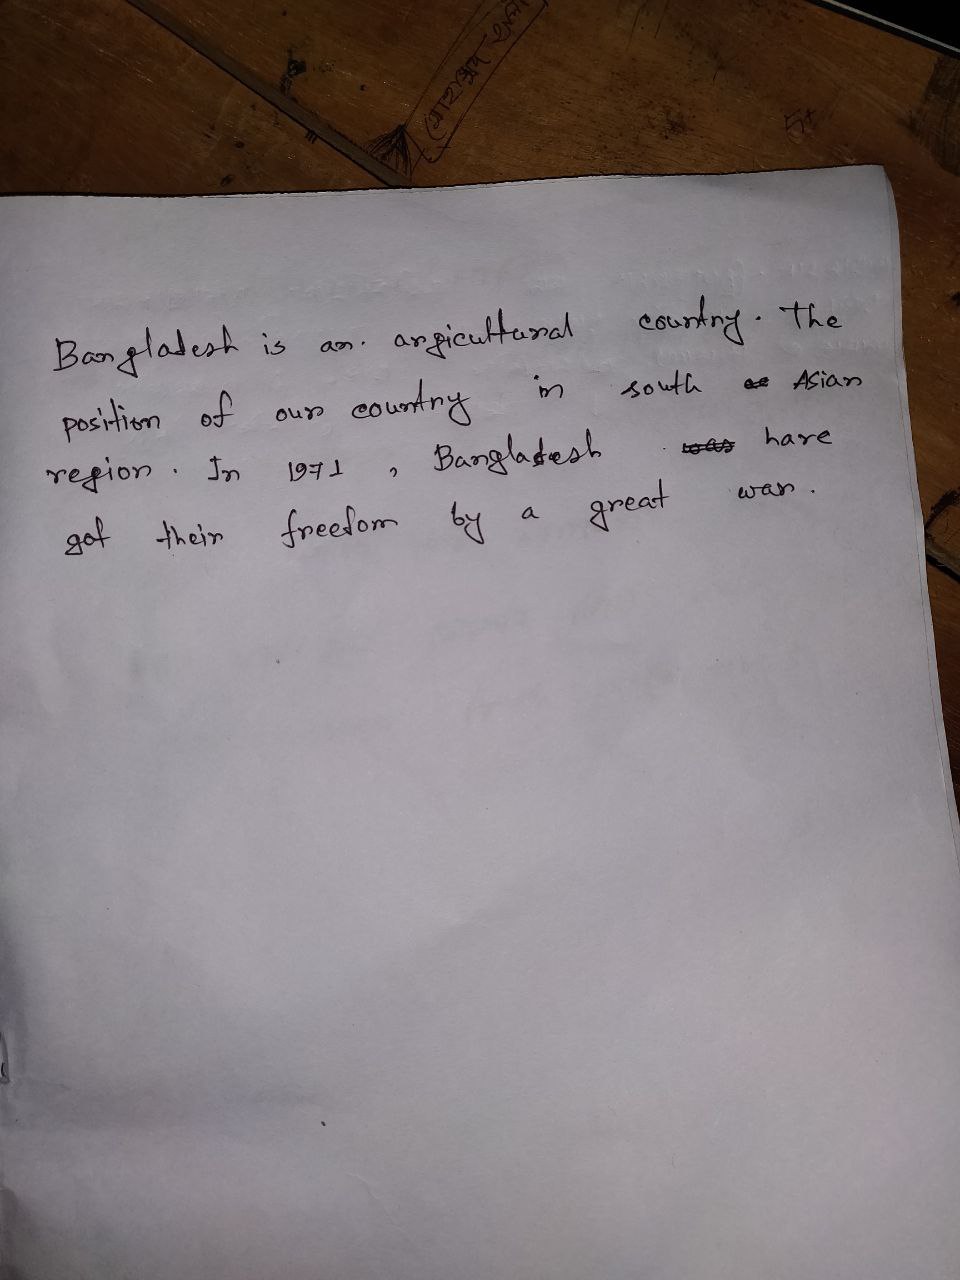 Bangladesh is an. argicultural country. The
position of our country in south Asian
region. In 1971, Bangladesh have
got their freedom by a great war.